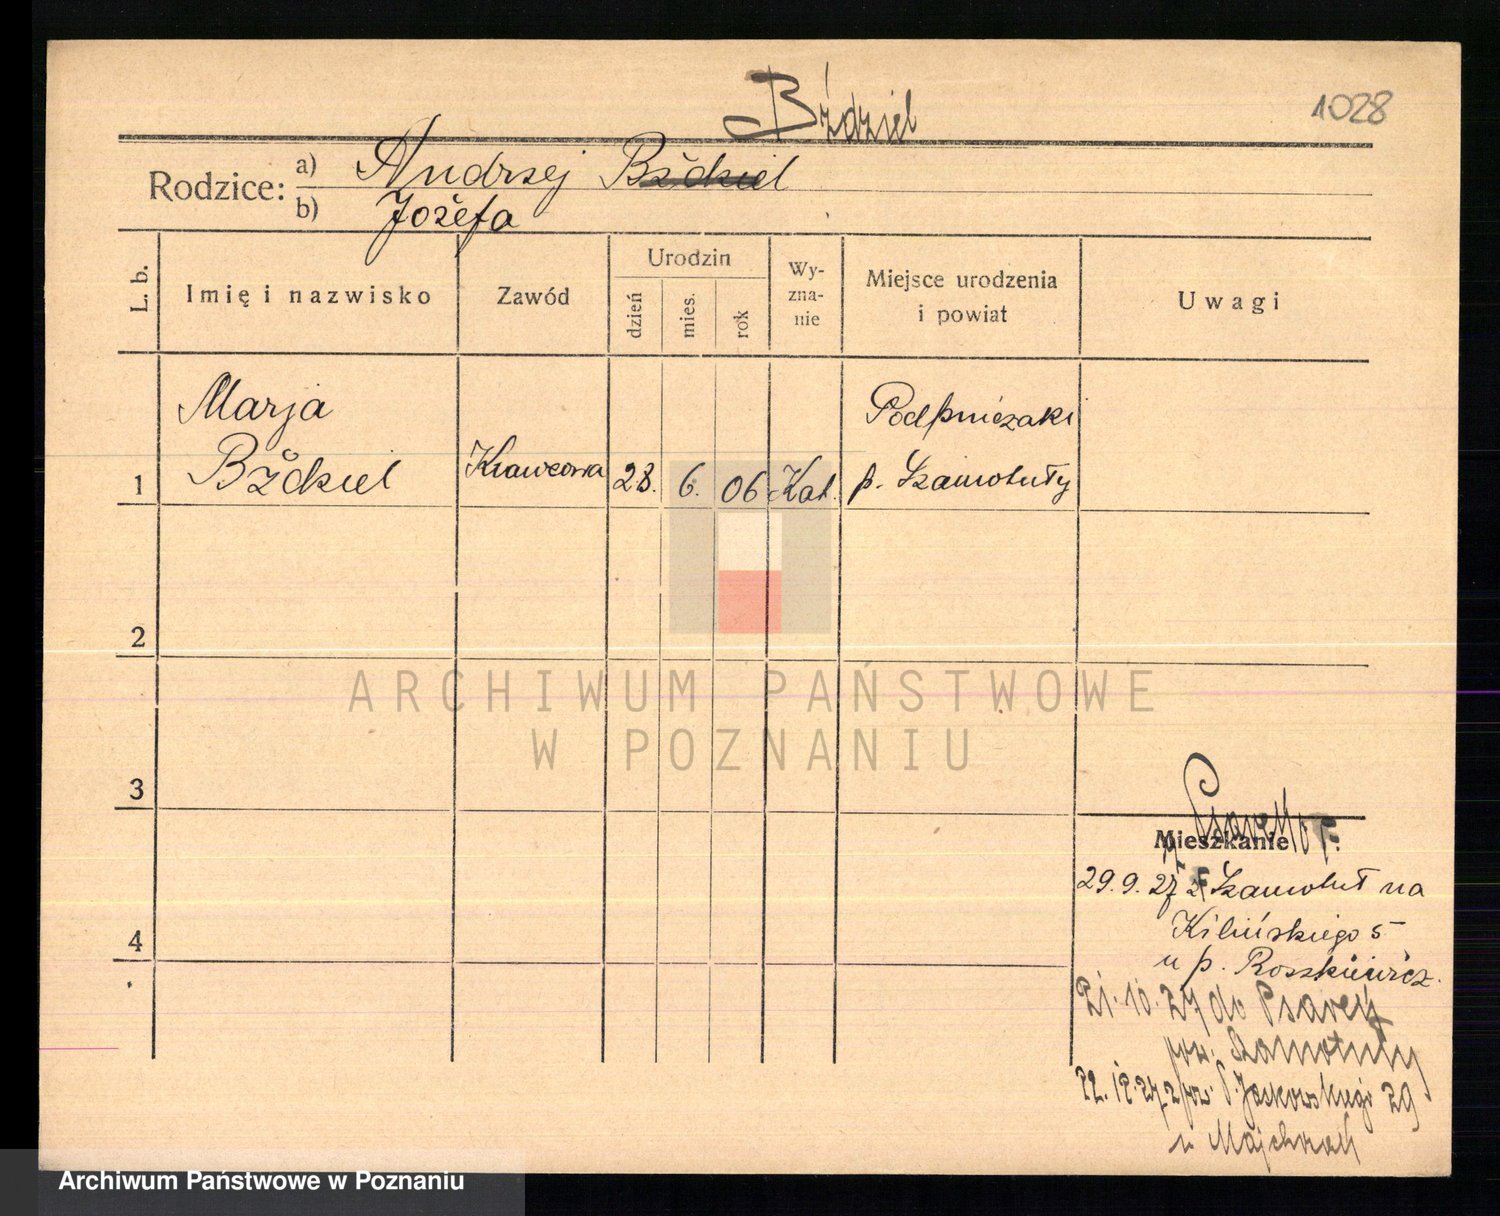 Bździel
1028
Rodzice: a) Andrzej Bżdziel
b) Jozefa
L. b.
Imię i nazwisko
Zawód
Urodzin
dzień
mies.
rok
Wy-
zna-
nie
Miejsce urodzenia
i powiat
Uwagi
Marja
1 Krawcowa 28. 6. 06 Kat. p. Szamotuły
2
3
4
Mieszkanie
29.9.27 z Szamotuł na
Kilińskiego 5
u p. Roszkiewicz.
21.10.27 do
pow. Szamotuły
22.12.27 z pow. Ś. Jackowskiego 29
u
ARCHIWUM PAŃSTWOWE
W POZNANIU
Archiwum Państwowe w Poznaniu